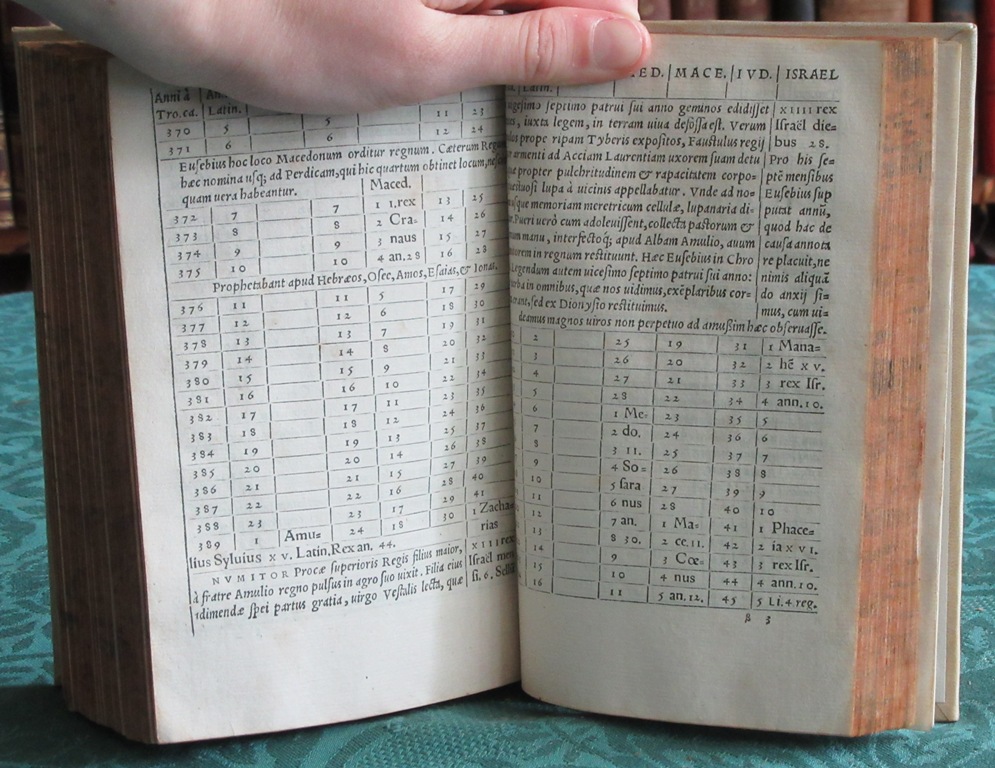 Anni à
Latin.
Tro.ca.
370 5 5 11 23
371 6 6 12 24
Eusebius hoc loco Macedonum orditur regnum. Cæterum
hæc nomina usq; ad Perdicam, qui hic quartum obtinet locum,
quam uera habeantur.
Maced.
372 7 7 1 1,rex 13 25
373 8 8 2 Cra- 14 26
374 9 9 3 naus 15 27
375 10 10 4 an.28 16 28
Prophetabant apud Hebræos, Osee, Amos, Esaias, & Ionas.
376 11 11 5 17 29
377 12 12 6 18 30
378 13 13 7 19 31
379 14 14 8 20 32
380 15 15 9 21 33
381 16 16 10 22 34
382 17 17 11 23 35
383 18 18 12 24 36
384 19 19 13 25 37
385 20 20 14 26 38
386 21 21 15 27 39
387 22 22 16 28 40
388 23 23 17 29 41
389 1 Amu= 24 18 30 1 Zacha=
rias
lius Syluius xv. Latin. Rex an. 44.
NVMITOR Procæ superioris Regis filius maior, xiii rex
à fratre Amulio regno pulsus in agro suo uixit. Filia eius Israël
dimendæ spei partus gratia, uirgo Vestalis lecta, quæ
ED. | MACE. | IVD. | ISRAEL
Latin.
septimo patrui sui anno geminos edidisset xiiii rex
iuxta legem, in terram uiua defossa est. Verum Israël die=
prope ripam Tyberis expositos, Faustulus regij bus 28.
armenti ad Acciam Laurentiam uxorem suam detu Pro his se=
propter pulchritudinem & rapacitatem corpo= ptē mensibus
lupa à uicinis appellabatur. Vnde ad no= Eusebius sup
memoriam meretricum cellulæ, lupanaria di= putat annū,
Pueri uerò cum adoleuissent, collecta pastorum & quod hac de
manu, interfectoq; apud Albam Amulio, auum causa annota
in regnum restituunt. Hæc Eusebius in Chro re placuit, ne
Legendum autem uicesimo septimo patrui sui anno: nimis aliquā
in omnibus, quæ nos uidimus, exēplaribus cor= do anxij si=
sed ex Dionysio restituimus. mus, cum ui=
deamus magnos uiros non perpetuo ad amussim hæc obseruasse.
2 25 19 31 1 Mana=
26 20 32 2 hē xv.
4 27 21 33 3 rex Isr.
28 22 34 4 ann.10.
6 1 Me= 23 35 5
7 2 do. 24 36 6
8 3 11. 25 37 7
9 4 So= 26 38 8
10 5 sara 27 39 9
11 6 nus 28 40 10
12 7 an. 1 Ma= 41 1 Phace=
13 8 30. 2 ce.11. 42 2 ia xvi.
14 9 3 Cœ= 43 3 rex Isr.
15 10 4 nus 44 4 ann.10.
16 11 5 an.12. 45 5 Li.4.reg.
g 3